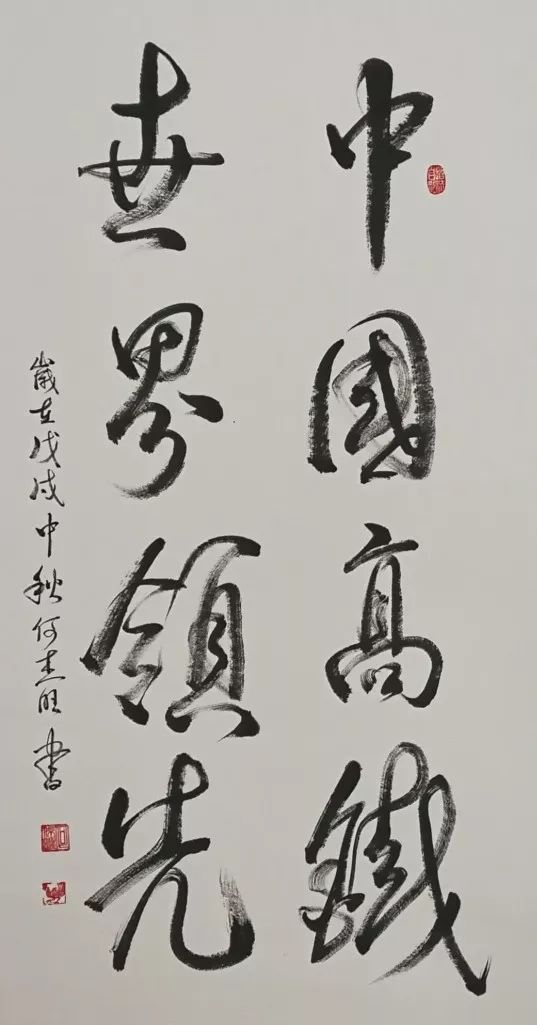 中國高鐵
世界領先
歲在戊戌中秋何志明書